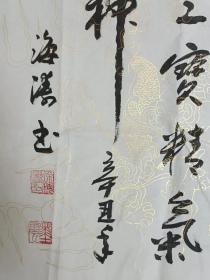 三寶精氣
神
辛丑年
海濤书